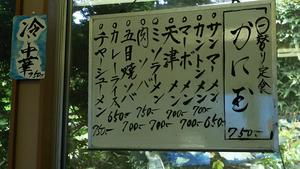 日替り定食
かに玉
750-
○サンマーメン 650-
○カントンメン 700-
○マーボメン 700-
○天津メン 700-
○ミソラーメン 700-
○肉ソバ 750-
○五目焼ソバ 700-
○カレーライス 650-
○チャーシューメン 750-
冷中華
750-